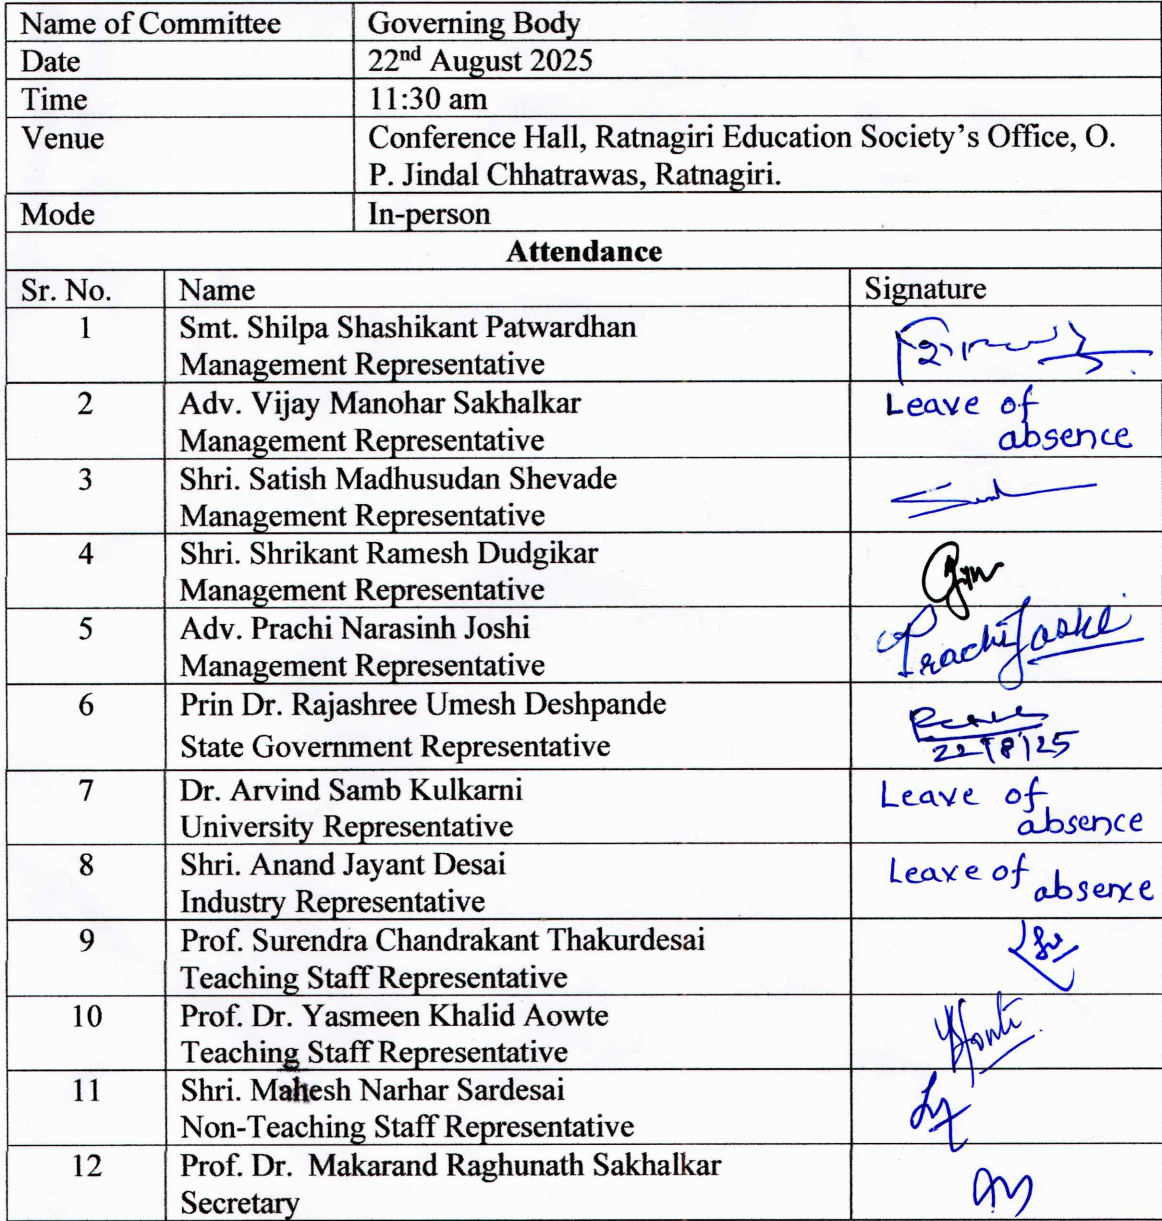 Name of Committee Governing Body
Date 22nd August 2025
Time 11:30 am
Venue Conference Hall, Ratnagiri Education Society's Office, O.
P. Jindal Chhatrawas, Ratnagiri.
Mode In-person
Attendance
Sr. No. Name Signature
1 Smt. Shilpa Shashikant Patwardhan
Management Representative
2 Adv. Vijay Manohar Sakhalkar Leave of
Management Representative absence
3 Shri. Satish Madhusudan Shevade
Management Representative
4 Shri. Shrikant Ramesh Dudgikar
Management Representative
5 Adv. Prachi Narasinh Joshi Prachi Joshi
Management Representative
6 Prin Dr. Rajashree Umesh Deshpande
State Government Representative 22/8/25
7 Dr. Arvind Samb Kulkarni Leave of
University Representative absence
8 Shri. Anand Jayant Desai Leave of absence
Industry Representative
9 Prof. Surendra Chandrakant Thakurdesai
Teaching Staff Representative
10 Prof. Dr. Yasmeen Khalid Aowte
Teaching Staff Representative
11 Shri. Mahesh Narhar Sardesai
Non-Teaching Staff Representative
12 Prof. Dr. Makarand Raghunath Sakhalkar
Secretary